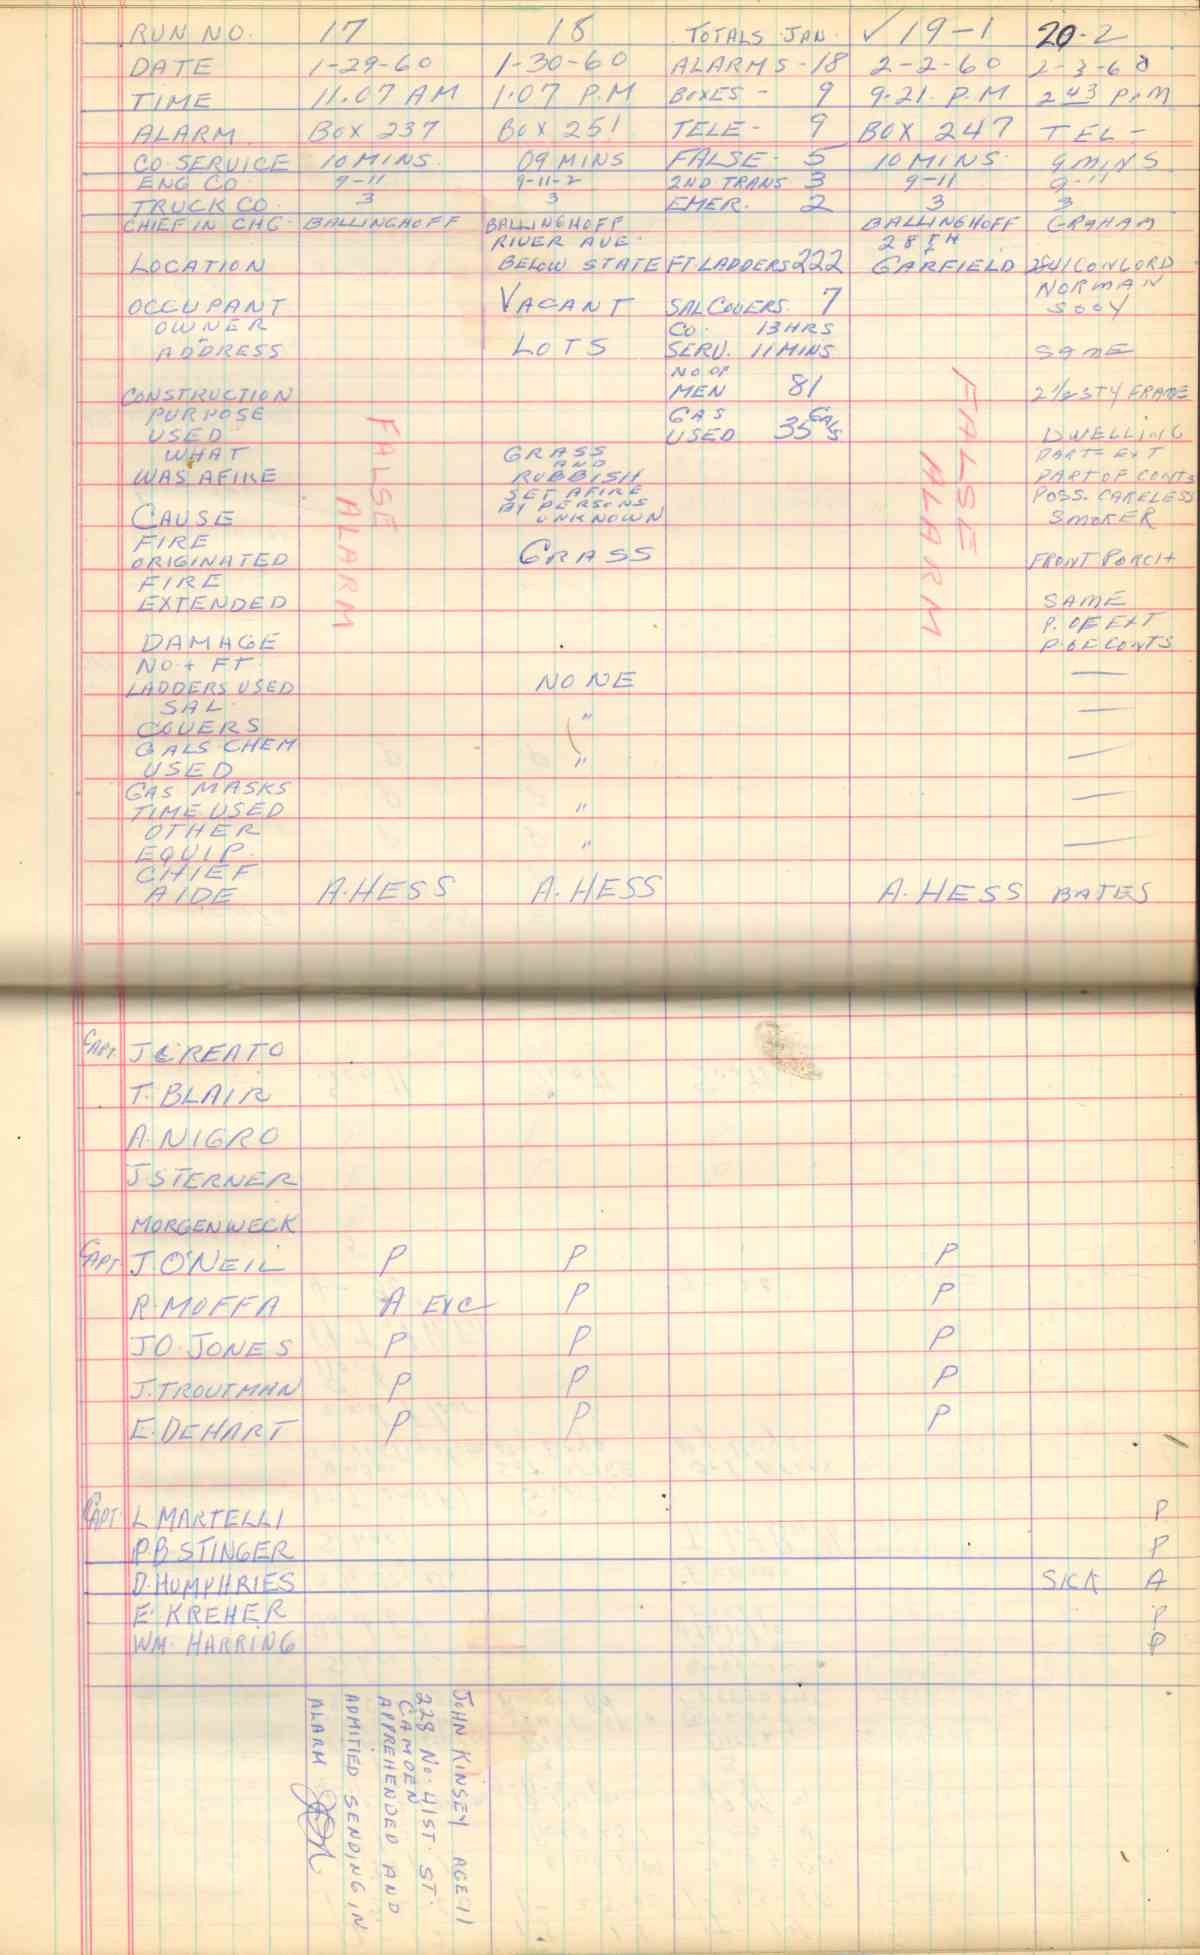 RUN NO. 17 18 TOTALS JAN. ✓ 19-1 20-2
DATE 1-29-60 1-30-60 ALARMS-18 2-2-60 2-3-60
TIME 11.07 AM 1.07 P.M BOXES - 9 9.21. P.M 2 43 P.M
ALARM BOX 237 BOX 251 TELE - 9 BOX 247 TEL -
CO-SERVICE 10 MINS. 09 MINS FALSE- 5 10 MINS. 9 MINS
ENG CO. 9-11 9-11-2 2ND TRANS 3 9-11 9-11
TRUCK CO. 3 3 EMER. 2 3 3
CHIEF IN CHG. BALLINGHOFF BALLINGHOFF BALLINGHOFF GRAHAM
RIVER AVE. 28TH
&
LOCATION BELOW STATE FT LADDERS 222 GARFIELD 2841 CONCORD
NORMAN
OCCUPANT VACANT SAL COVERS. 7 SOOY
OWNER CO. 13 HRS
ADDRESS LOTS SERV. 11 MINS SAME
NO OF
CONSTRUCTION MEN 81 2 1/2 STY FRAME
PURPOSE GAS GALS
USED USED 35 DWELLING
WHAT GRASS PART EXT
AND
WAS AFIRE RUBBISH PART OF CONTS
SET AFIRE POSS. CARELESS
BY PERSONS
CAUSE UNKNOWN SMOKER
FIRE
ORIGINATED GRASS FRONT PORCH
FIRE
EXTENDED SAME
P. OF EXT
DAMAGE P. OF CONTS
NO + FT.
LADDERS USED NONE —
SAL.
COVERS " —
GALS CHEM
USED " —
GAS MASKS
TIME USED " —
OTHER
EQUIP. " —
CHIEF
AIDE A. HESS A. HESS A. HESS BATES
FALSE
ALARM
FALSE
ALARM
CAPT. J CREATO
T. BLAIR
A. NIGRO
J STERNER
MORGENWECK
CAPT. J O'NEIL P P P
R. MOFFA A EXC P P
JO. JONES P P P
J. TROUTMAN P P P
E. DEHART P P P
CAPT. L MARTELLI P
P.B STINGER P
D. HUMPHRIES SICK A
E. KREHER P
WM. HARRING P
JOHN KINSEY AGE 11
228 No. 41ST. ST.
CAMDEN
APPREHENDED AND
ADMITIED SENDING IN
ALARM